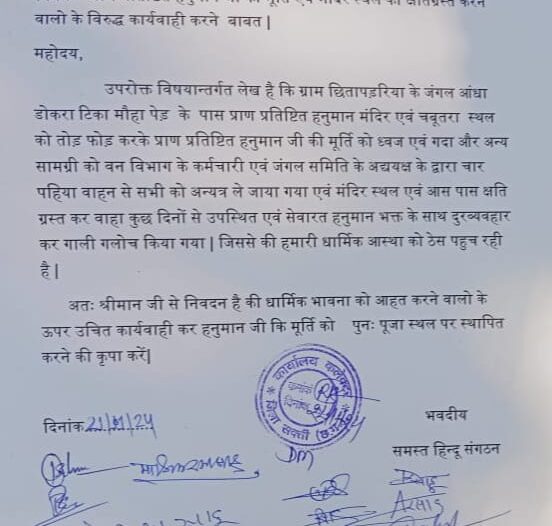 वालो के विरुद्ध कार्यवाही करने बाबत |
महोदय,
उपरोक्त विषयान्तर्गत लेख है कि ग्राम छितापड़रिया के जंगल आंधा
डोकरा टिका मौहा पेड़ के पास प्राण प्रतिष्टित हनुमान मंदिर एवं चबूतरा स्थल
को तोड़ फोड़ करके प्राण प्रतिष्टित हनुमान जी की मूर्ति को ध्वज एवं गदा और अन्य
सामग्री को वन विभाग के कर्मचारी एवं जंगल समिति के अद्ययक्ष के द्वारा चार
पहिया वाहन से सभी को अन्यत्र ले जाया गया एवं मंदिर स्थल एवं आस पास क्षति
ग्रस्त कर वाहा कुछ दिनों से उपस्थित एवं सेवारत हनुमान भक्त के साथ दुरव्यवहार
कर गाली गलोच किया गया | जिससे की हमारी धार्मिक आस्था को ठेस पहुच रही
है |
अतः श्रीमान जी से निवदन है की धार्मिक भावना को आहत करने वालो के
ऊपर उचित कार्यवाही कर हनुमान जी कि मूर्ति को पुनः पूजा स्थल पर स्थापित
करने की कृपा करें|
कार्यालय कलेक्टर
क्रमांक
दिनांक
जिला सक्ती (छ०ग०)
दिनांक
DM
भवदीय
समस्त हिन्दू संगठन